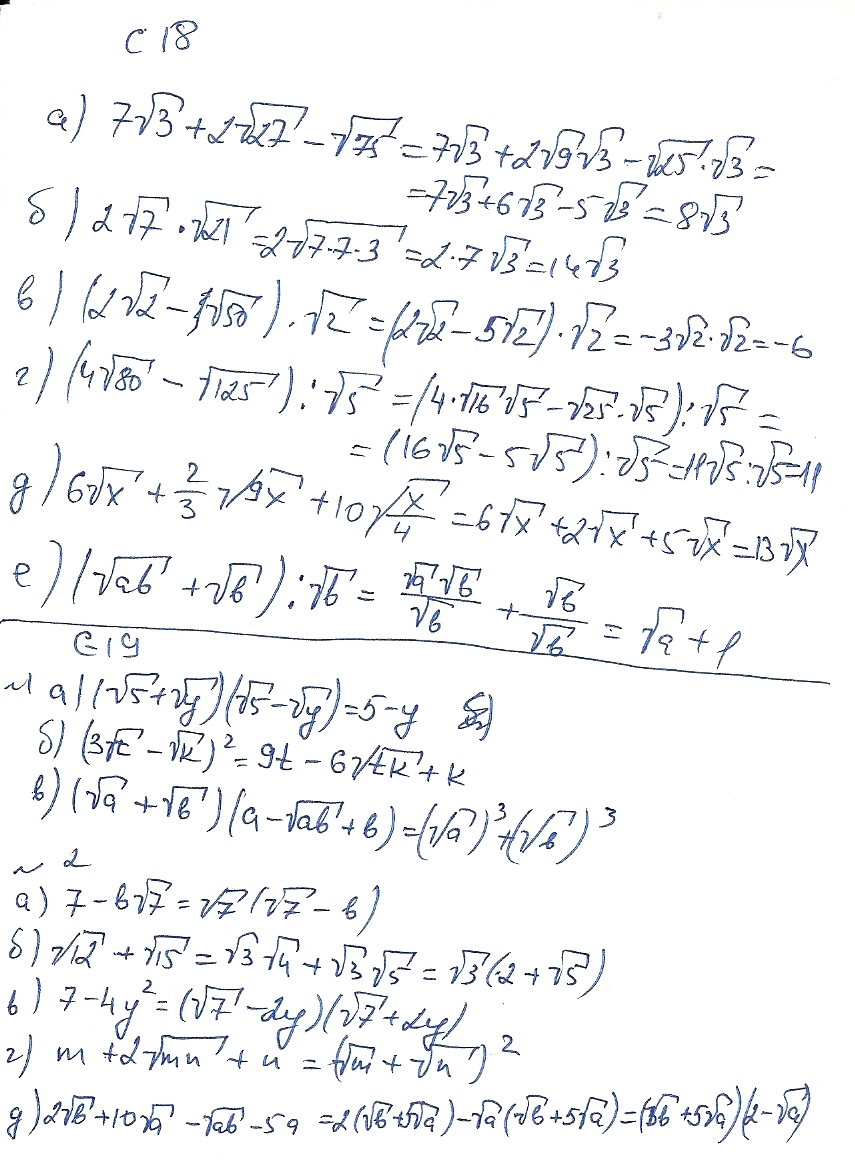 С 18
а) 7√3 + 2√27 - √75 = 7√3 + 2√9√3 - √25·√3 =
= 7√3 + 6√3 - 5√3 = 8√3
б) 2√7 · √21 = 2√7·7·3 = 2·7√3 = 14√3
в) (2√2 - √50) · √2 = (2√2 - 5√2) · √2 = -3√2·√2 = -6
г) (4√80 - √125) : √5 = (4·√16√5 - √25·√5) : √5 =
= (16√5 - 5√5) : √5 = 11√5 : √5 = 11
д) 6√x + 2/3 √9x + 10√x/4 = 6√x + 2√x + 5√x = 13√x
е) (√ab + √b) : √b = √a√b/√b + √b/√b = √a + 1
С 19
№1 а) (√5 + √y)(√5 - √y) = 5 - y
б) (3√t - √k)² = 9t - 6√tk + k
в) (√a + √b)(a - √ab + b) = (√a)³ + (√b)³
№ 2
а) 7 - b√7 = √7(√7 - b)
б) √12 + √15 = √3√4 + √3√5 = √3(2 + √5)
в) 7 - 4y² = (√7 - 2y)(√7 + 2y)
г) m + 2√mn + n = (√m + √n)²
д) 2√b + 10√a - √ab - 5a = 2(√b + 5√a) - √a(√b + 5√a) = (√b + 5√a)(2 - √a)